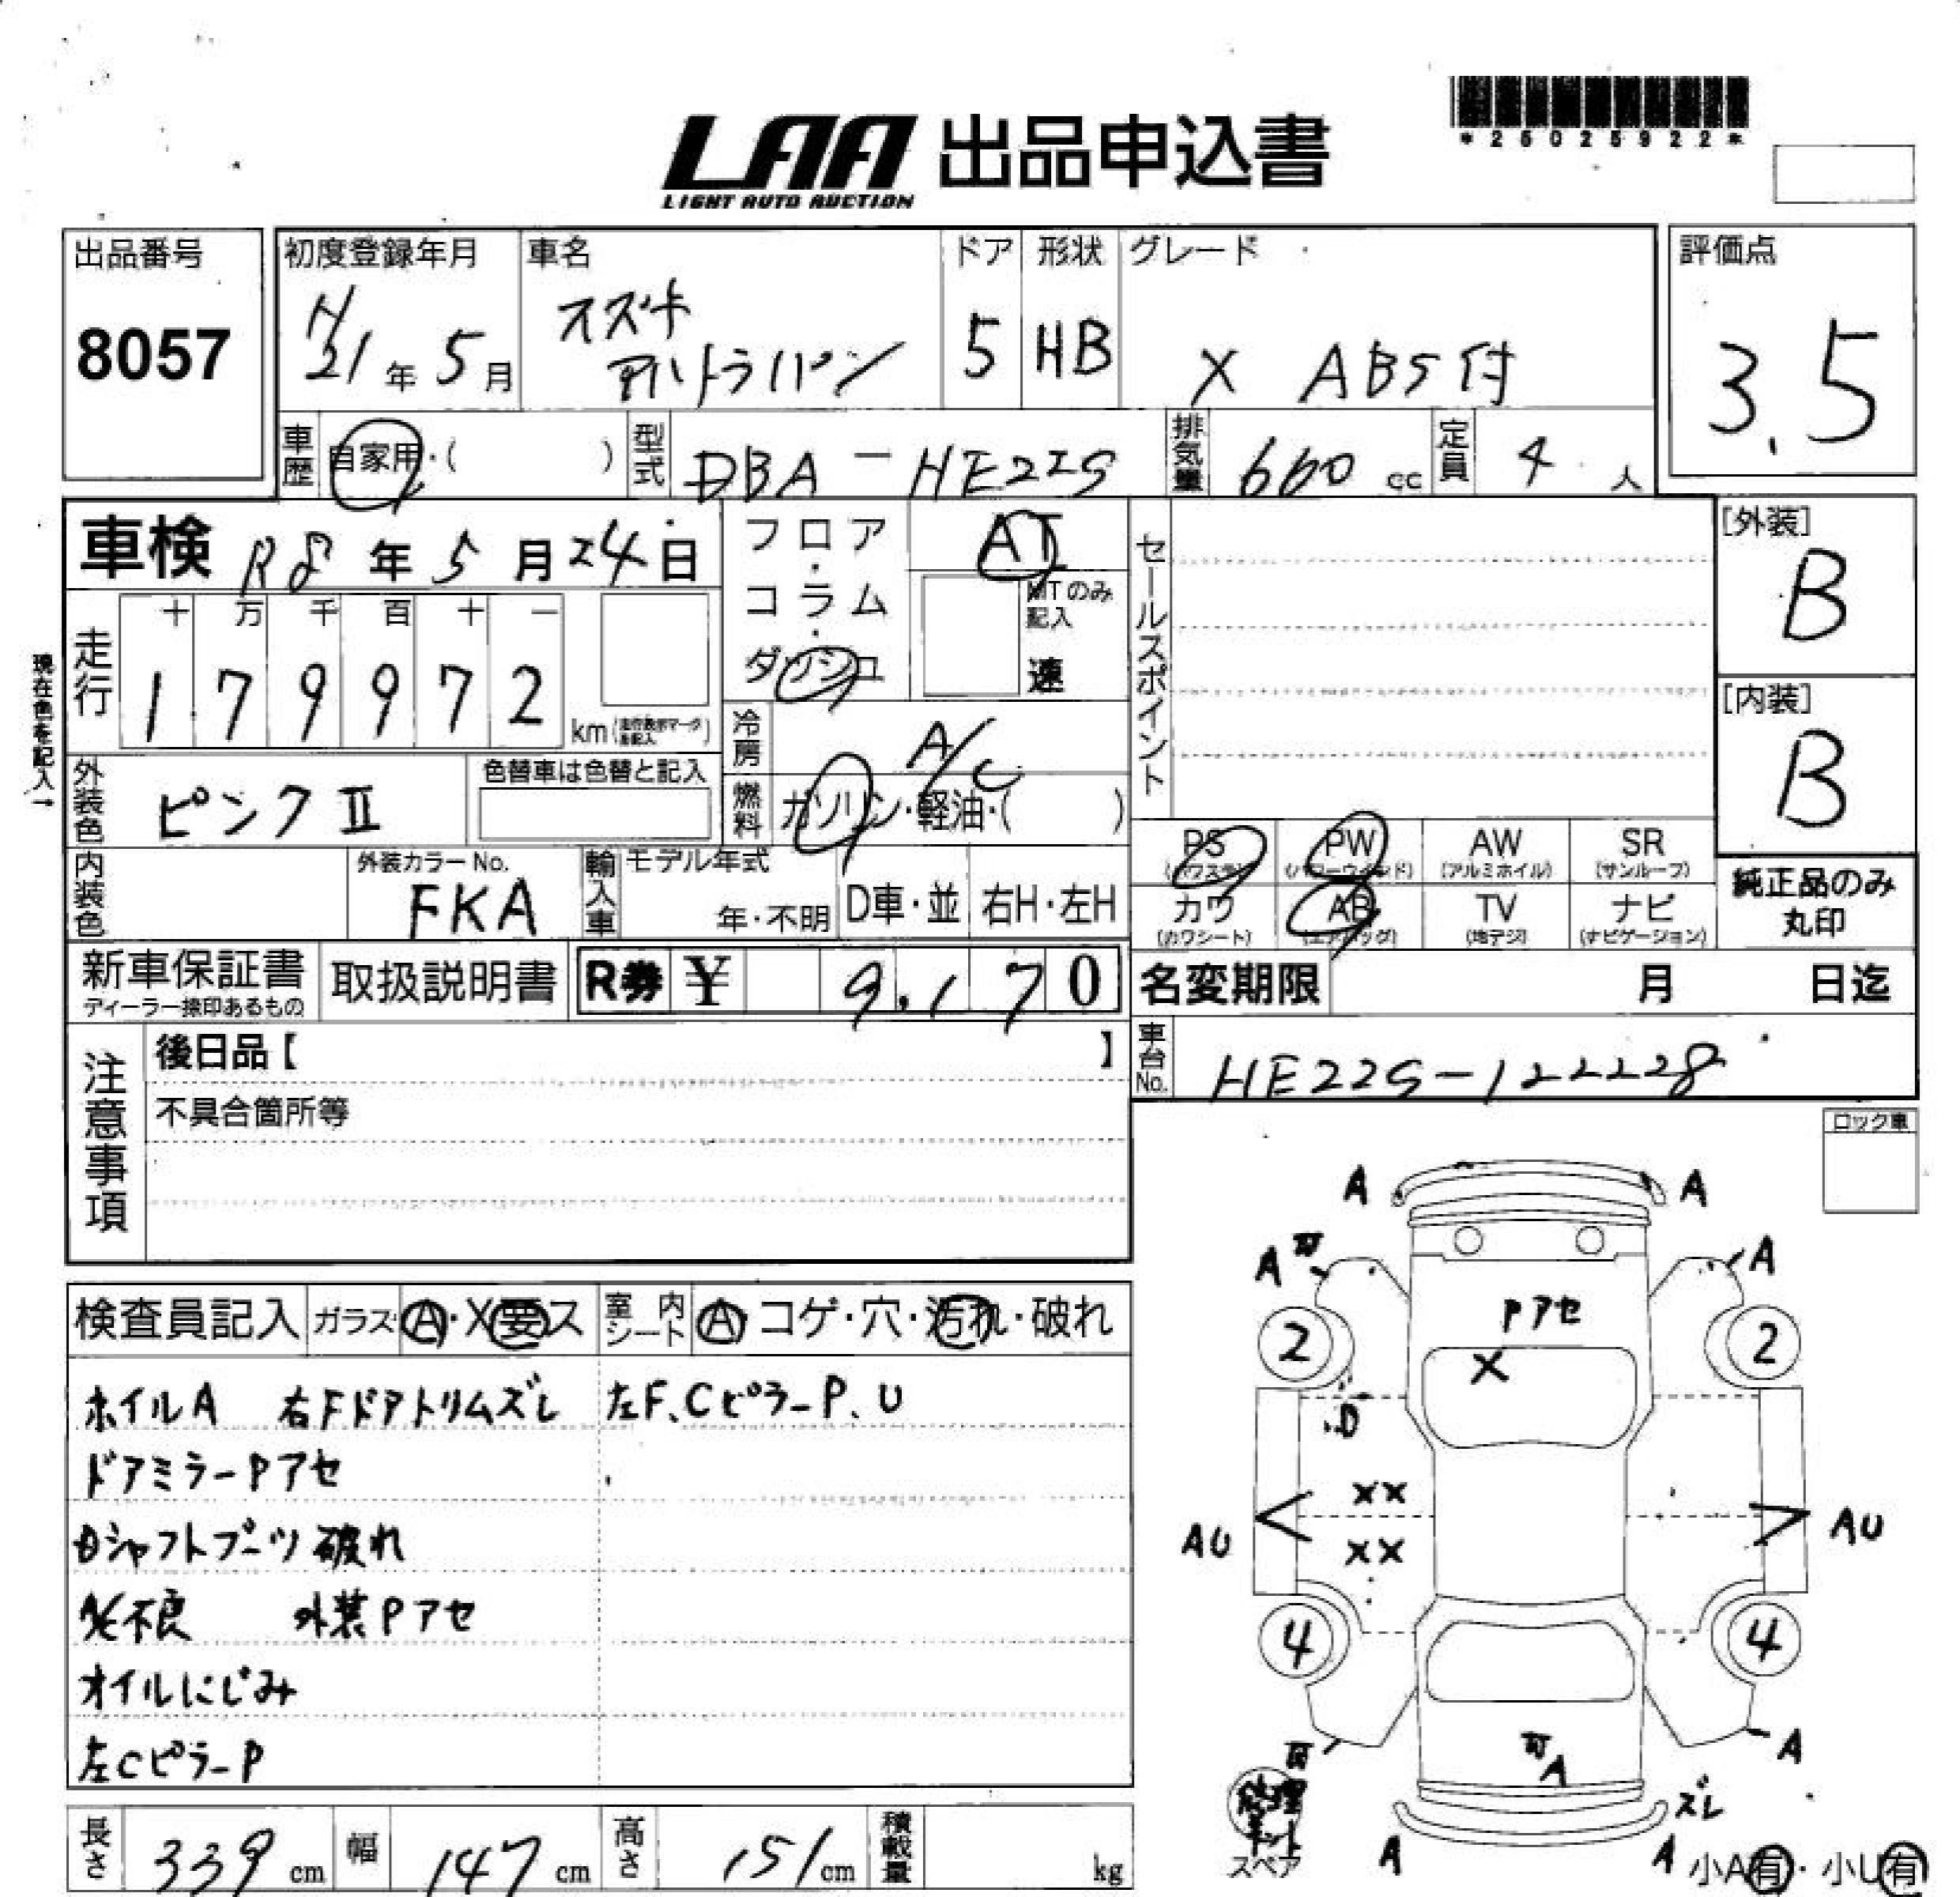 LAA 出品申込書
LIGHT AUTO AUCTION
*26025922*
出品番号
8057
初度登録年月
H21年5月
車名
スズキ
アルトラパン
ドア
5
形状
HB
グレード
X ABS付
評価点
3.5
車歴 自家用・( )
型式 DBA-HE22S
排気量 660 cc
定員 4人
車検 R8年5月24日
フロア・コラム・ダッシュ
AT
MTのみ記入
速
セールスポイント
[外装]
B
[内装]
B
現在色を記入→
走行
十 万 千 百 十 一
1 7 9 9 7 2 km
冷房 A/C
外装色 ピンクⅡ
色替車は色替と記入
燃料 ガソリン・軽油・( )
内装色
外装カラーNo.
FKA
輸入車 モデル年式
年・不明 D車・並 右H・左H
PS (パワステ) PW (パワーウインド) AW (アルミホイル) SR (サンルーフ)
カワ (カワシート) AB (エアバッグ) TV (地デジ) ナビ (ナビゲーション)
純正品のみ
丸印
新車保証書
ディーラー捺印あるもの
取扱説明書
R券 ¥ 9,170
名変期限 月 日迄
注意事項
後日品【 】
不具合箇所等
車台No. HE22S-122228
ロック車
検査員記入 ガラス A・X要ス
室内シート A・コゲ・穴・汚れ・破れ
ホイルA 右Fドアトリムズレ 左F、CピラーP、U
ドアミラーPアセ
Dシャフトブーツ破れ
A/C不良 外装Pアセ
オイルにじみ
左CピラーP
A A
A A
Pアセ
2 X 2
D
XX
AU XX AU
4 4
A
A
ズレ
修理キット
スペア
A A
小A有・小U有
長さ 339 cm
幅 147 cm
高さ 151 cm
積載量 kg